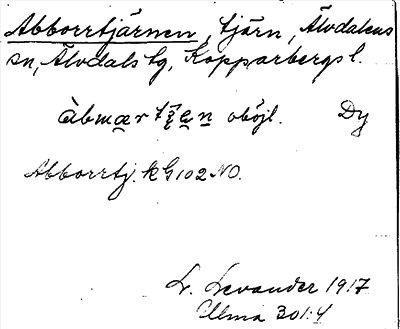 Abborrtjärnen, tjärn, Älvdalens
sn, Älvdals tg, Kopparbergs l.
àbmær oböjl. Dy
Abborrtj. k G 102 NO.
L. Levander 1917
Ulma 301:4